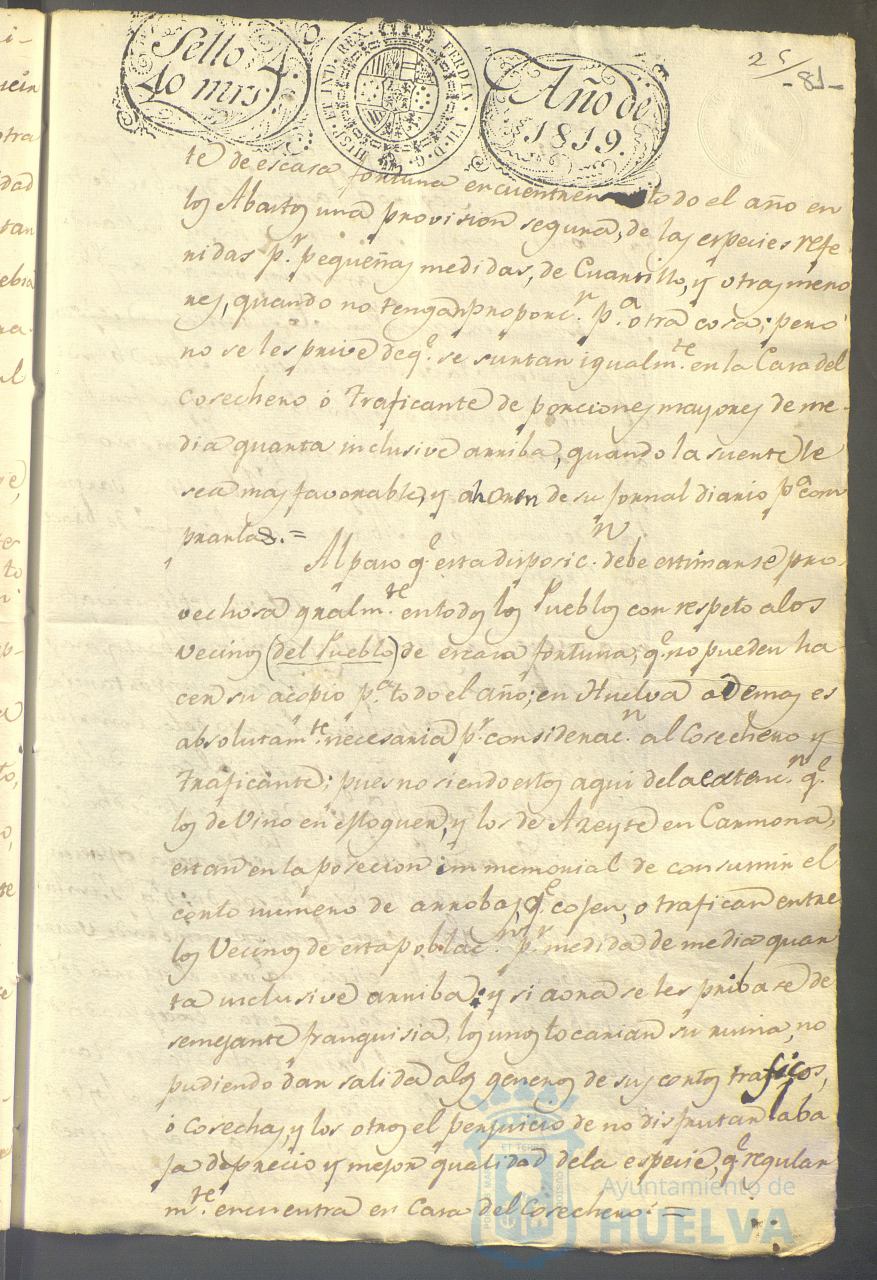 Sello 4.
40 mrs
HISP. ET IND. REX. FERD. VII. D. G.
Año de
1819.
25/
-81-
te de escasa fortuna encuentren todo el año en
los Abastos una provision segura, de las especies refe
ridas pr. pequeñas medidas, de Cuartillo, y otras meno
res, quando no tengan proporcn. pa. otra cosa; pero
no se les prive de qe. se surtan igualmte. en la Casa del
Cosechero ó Traficante de porciones mayores de me-
dia quarta inclusive arriba, quando la suerte le
sea mas favorable, y ahorren de su jornal diario pa. com
prarlas.=
Al paso qe. esta disposicn. debe estimarse pro-
vechosa gralmte. en todos los Pueblos con respeto a los
vecinos (del Pueblo) de escasa fortuna, qe. no pueden ha
cer su acopio pa. todo el año; en Huelva ademas es
absolutamte. necesaria pr. consideracn. al Cosechero y
Traficante; pues no siendo estos aqui de la extencn. qe.
los de Vino en Moguer, y los de Azeyte en Carmona,
estan en la posecion immemorial de consumir el
corto numero de arrobas, qe. cojen, o trafican entre
los Vecinos de esta poblacn. pr. medida de media quar
ta inclusive arriba; y si aora se les pribase de
semejante franquisia, los unos tocarian su ruina, no
pudiendo dar salida a los generos de sus cortos traficos,
ó Cosechas, y los otros el perjuicio de no disfrutar la ba
ja de precio y mejor qualidad de la especie, qe. regular
mte. encuentra en Casa del Cosechero. =
Ayuntamiento de
HUELVA